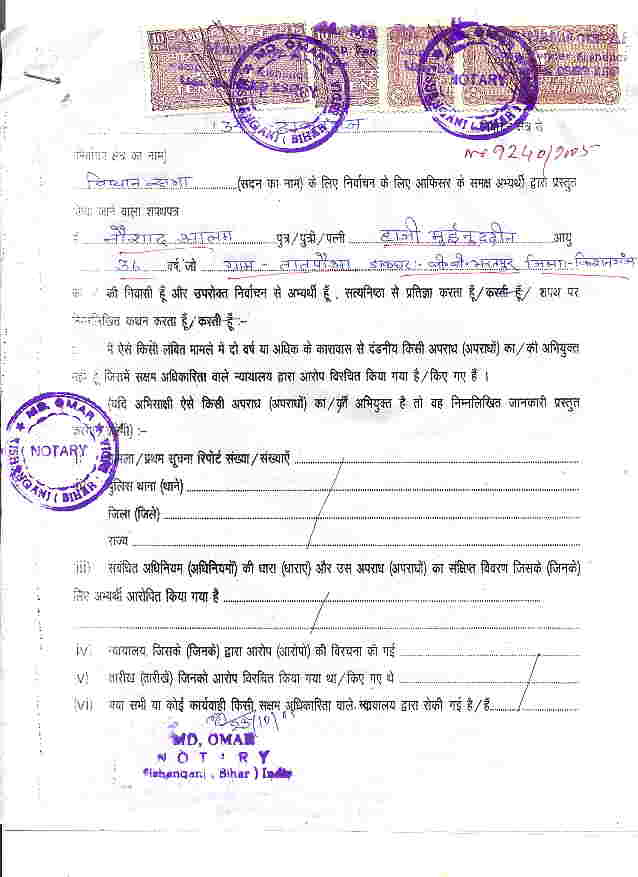 MD. OMAR
NOTARY
KISHANGANJ (BIHAR)
No 9240/2005
विधान सभा (सदन का नाम) के लिए निर्वाचन के लिए आफिसर के समक्ष अभ्यर्थी द्वारा प्रस्तुत
किया जाने वाला शपथपत्र
नौशाद आलम पुत्र/पुत्री/पत्नी हाजी मुईनुद्दीन आयु
36 वर्ष, जो ग्राम - तातपौआ डाकघर:- जिला:- किशनगंज
का / की निवासी हूँ और उपरोक्त निर्वाचन से अभ्यर्थी हूँ , सत्यनिष्ठा से प्रतिज्ञा करता हूँ/करती हूँ/ शपथ पर
निम्नलिखित कथन करता हूँ/करती हूँ :-
मै ऐसे किसी लंबित मामले में दो वर्ष या अधिक के कारावास से दंडनीय किसी अपराध (अपराधों) का/की अभियुक्त
नहीं हूँ जिसमें सक्षम अधिकारिता वाले न्यायालय द्वारा आरोप विरचित किया गया है/किए गए हैं ।
(यदि अभिसाक्षी ऐसे किसी अपराध (अपराधों) का/की अभियुक्त है तो वह निम्नलिखित जानकारी प्रस्तुत
:-
MD. OMAR
NOTARY
KISHANGANJ (BIHAR)
मामला/प्रथम सूचना रिपोर्ट संख्या/संख्याएँ
पुलिस थाना (थाने)
जिला (जिले)
राज्य
iii) संबंधित अधिनियम (अधिनियमों) की धारा (धाराएं) और उस अपराध (अपराधों) का संक्षिप्त विवरण जिसके (जिनके)
लिए अभ्यर्थी आरोपित किया गया है
iv) न्यायालय, जिसके (जिनके) द्वारा आरोप (आरोपों) की विरचना की गई
v) तारीख (तारीखें) जिनको आरोप विरचित किया गया था/किए गए थे
(vi) क्या सभी या कोई कार्यवाही किसी, सक्षम अधिकारिता वाले न्यायालय द्वारा रोकी गई है/हैं
MD, OMAR
NOTARY
Kishanganj, Bihar ) India